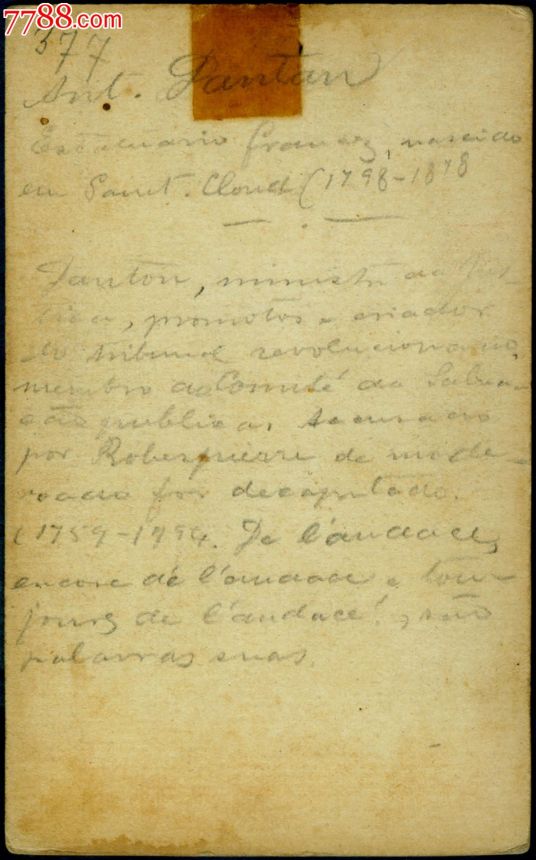 7788.com
377
Ant. Dantan
Estatuario francez, nascido
em Saint. Cloud (1798-1878
Danton, ministro da Jus-
tiça, promotor e criador
do tribunal revolucionario,
membro do Comité da Salva-
ção publica, accusado
por Robespierre de mode-
rado foi decapitado.
(1759-1794. De l'audace,
encore de l'audace e tou-
jours de l'audace! são
palavras suas.